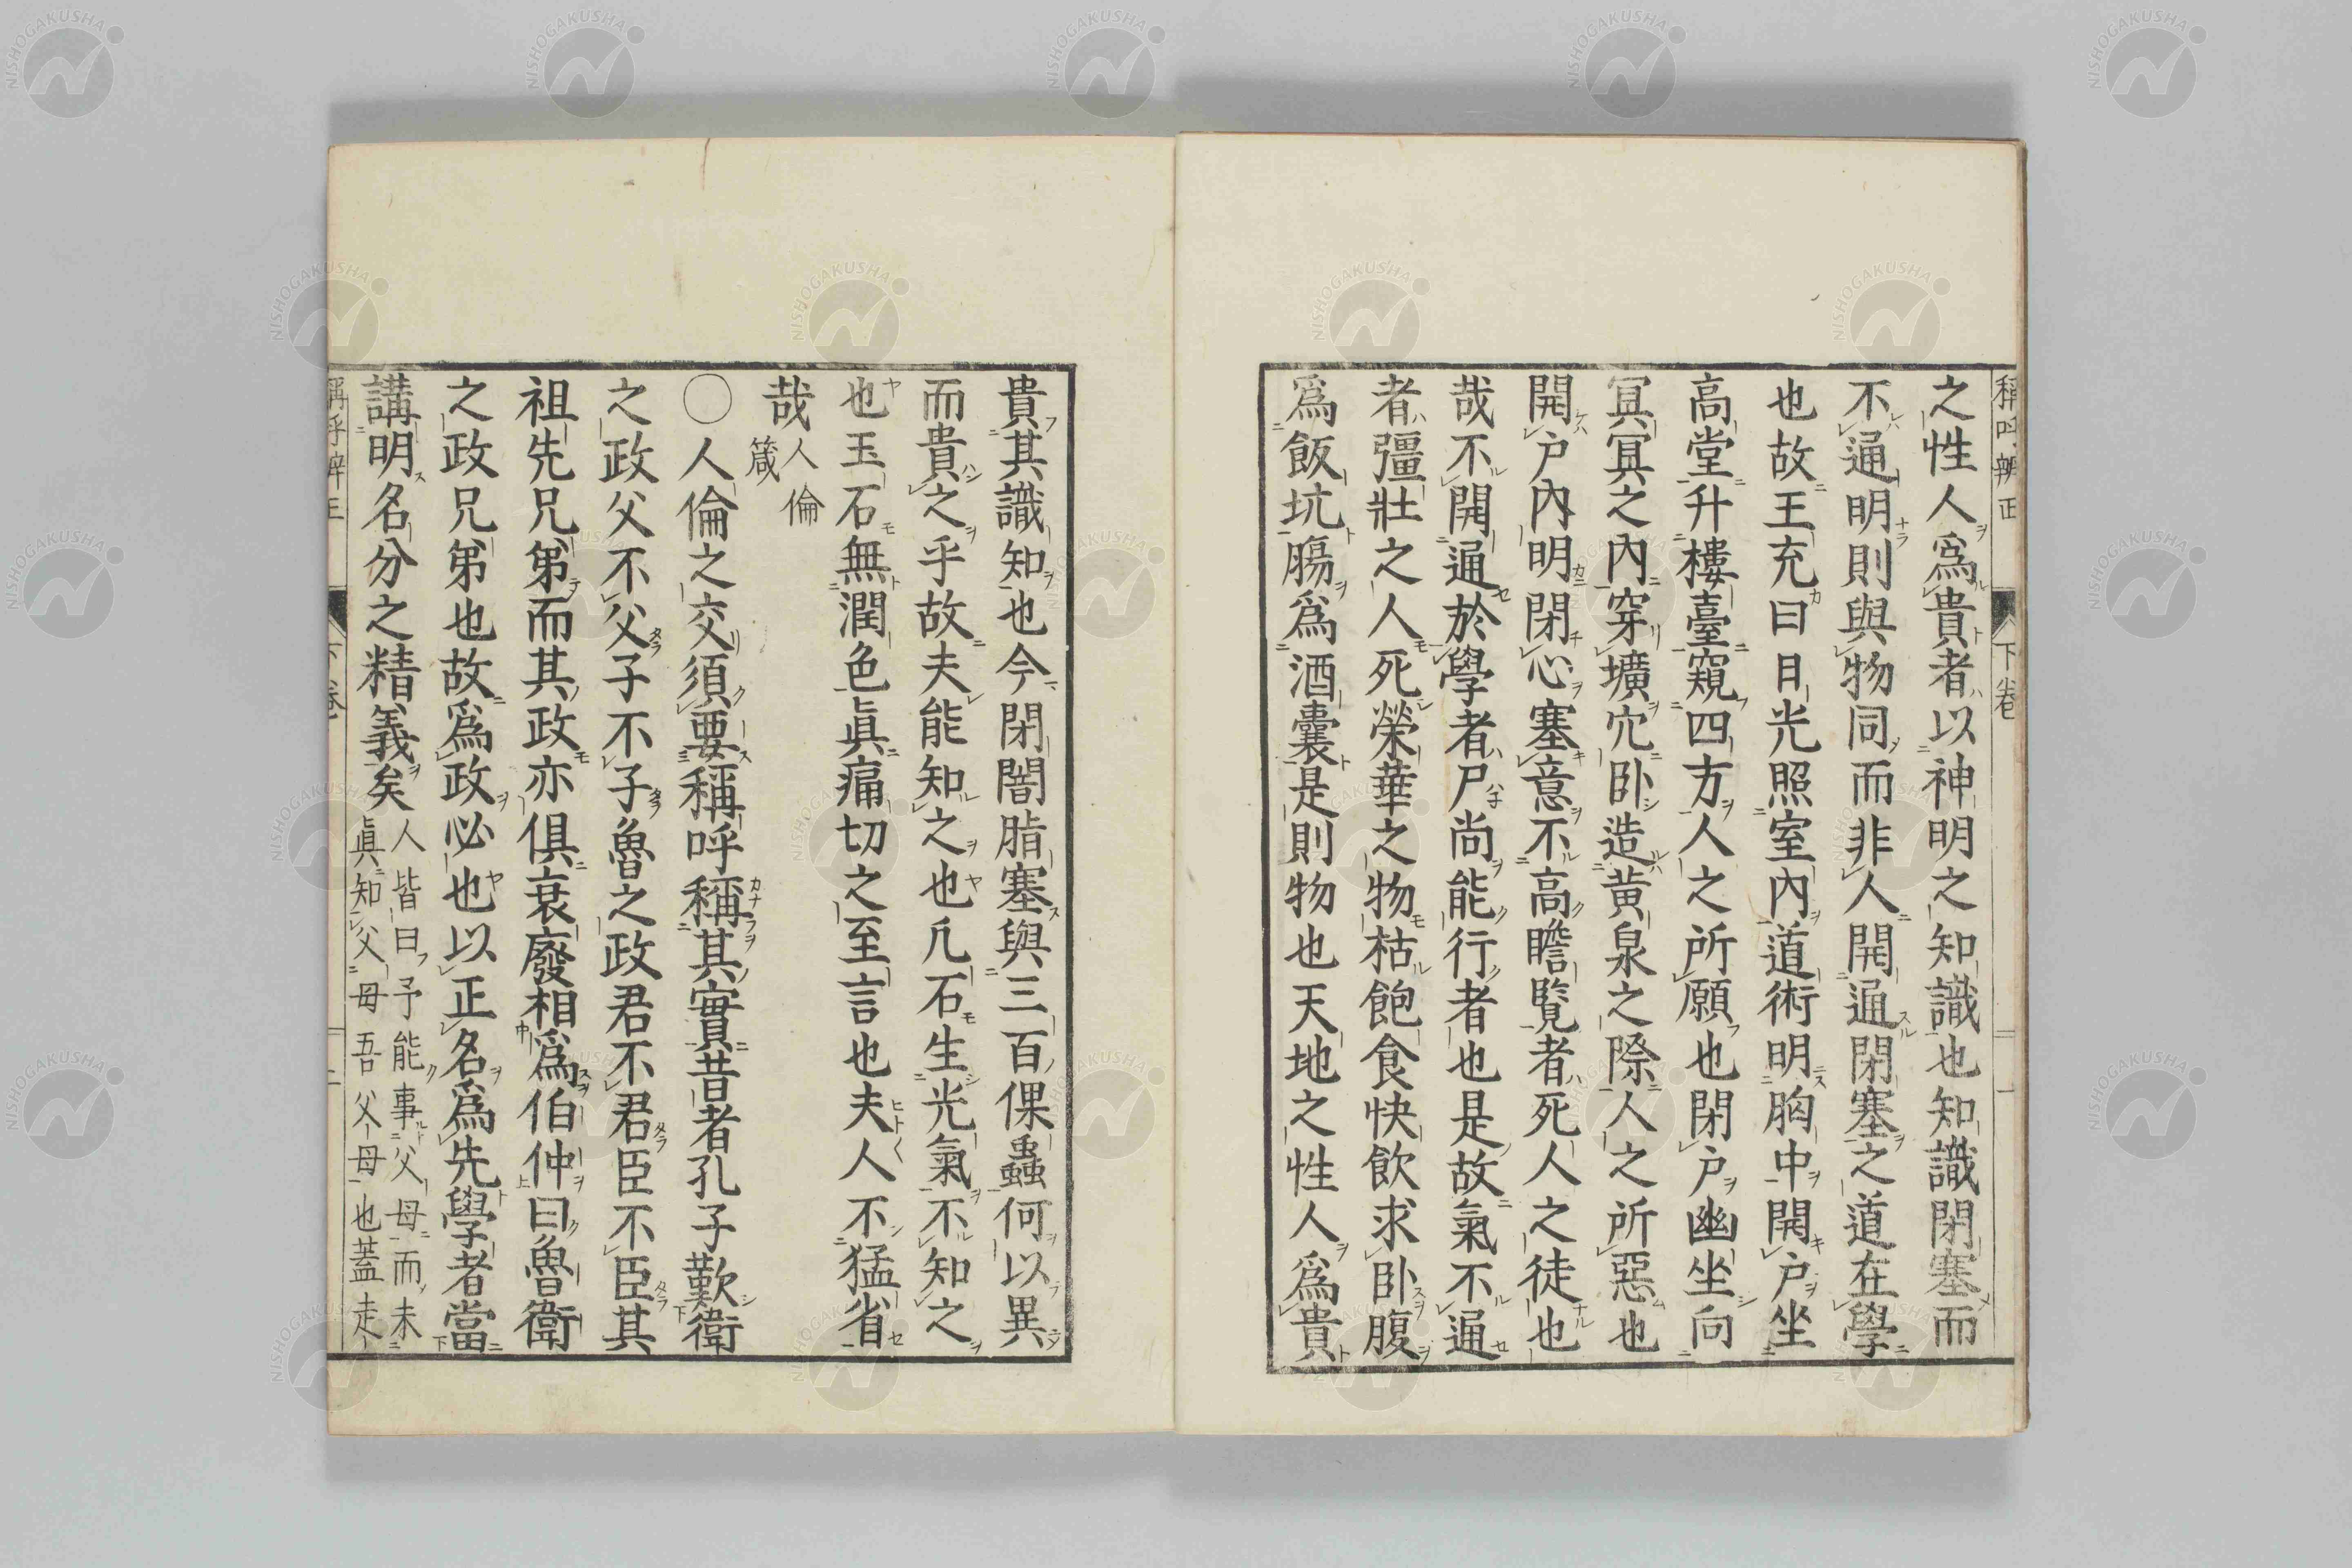 稱呼辨正 下卷
之性人爲貴者以神明之知識也知識閉塞而
不通明則與物同而非人開通閉塞之道在學
也故王充曰日光照室內道術明胸中開戶坐
高堂升樓臺窺四方人之所願也閉戶幽坐向
冥冥之內穿壙穴卧造黃泉之際人之所惡也
開戶內明閉心塞意不高瞻覽者死人之徒也
哉不開通於學者尸尚能行者也是故氣不通
者彊壯之人死榮華之物枯飽食快飲求卧腹
爲飯坑腸爲酒囊是則物也天地之性人爲貴
貴其識知也今閉闇脂塞與三百倮蟲何以異
而貴之乎故夫能知之也凡石生光氣不知之
也玉石無潤色眞痛切之至言也夫人不猛省
哉
人倫
箴
〇人倫之交須要稱呼稱其實昔者孔子歎衛
之政父不父子不子魯之政君不君臣不臣其
祖先兄弟而其政亦俱衰廢相爲伯仲曰魯衛
之政兄弟也故爲政必也以正名爲先學者當
講明名分之精義矣
人皆曰予能事父母而未
眞知父母吾父母也蓋走